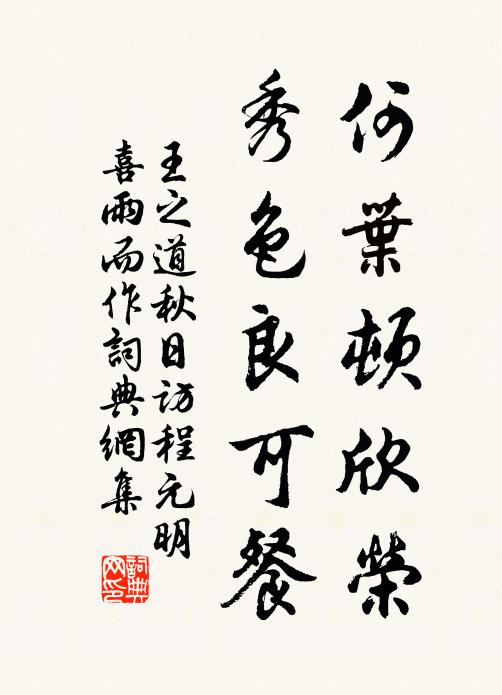 何葉頓欣榮
秀色良可餐
王之道秋日訪程元明
喜雨而作詞典網集
詞典
网印